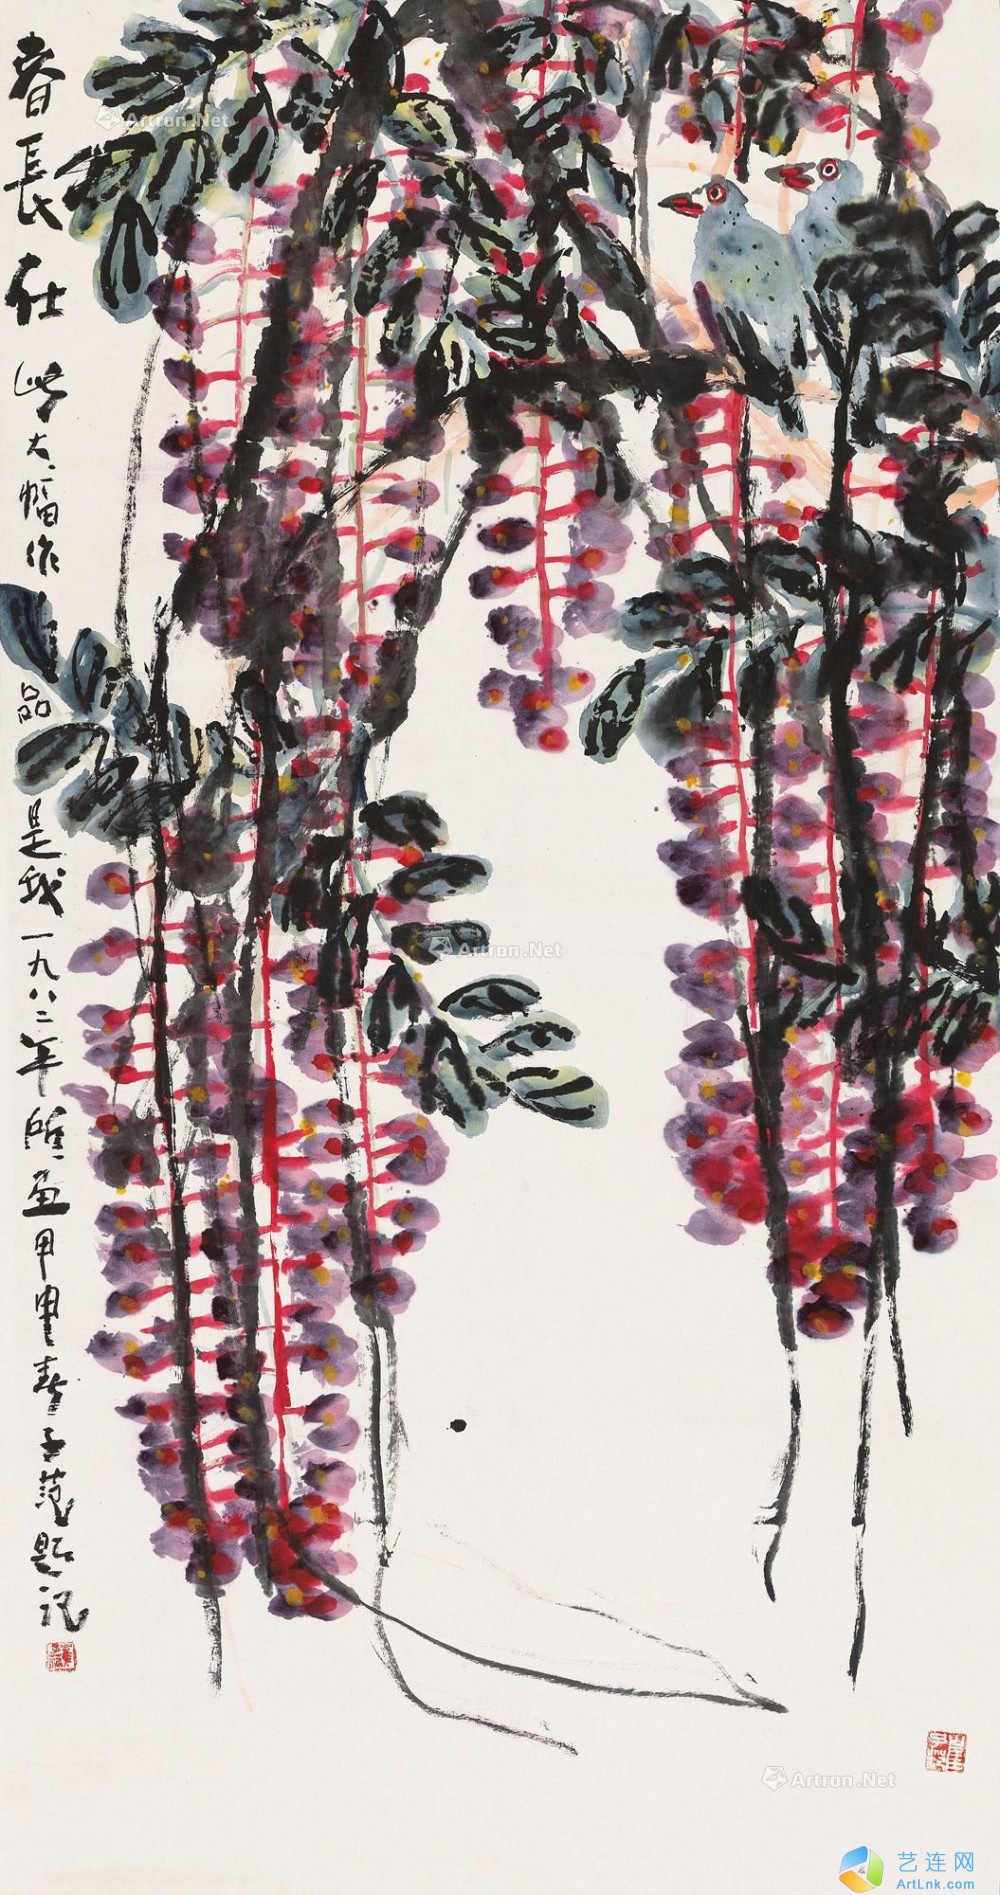 春長在
此大幅作品是我一九八二年所画甲申春子范題記
Artron.Net
Artron.Net
Artron.Net
艺连网
ArtLnk.com